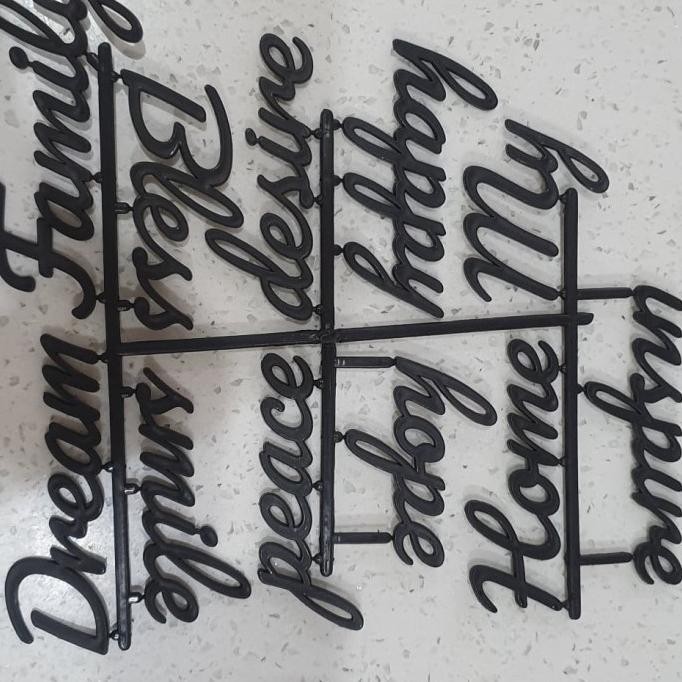 Dream
Family
smile
Bless
peace
desire
hope
happy
Home
My
inspire